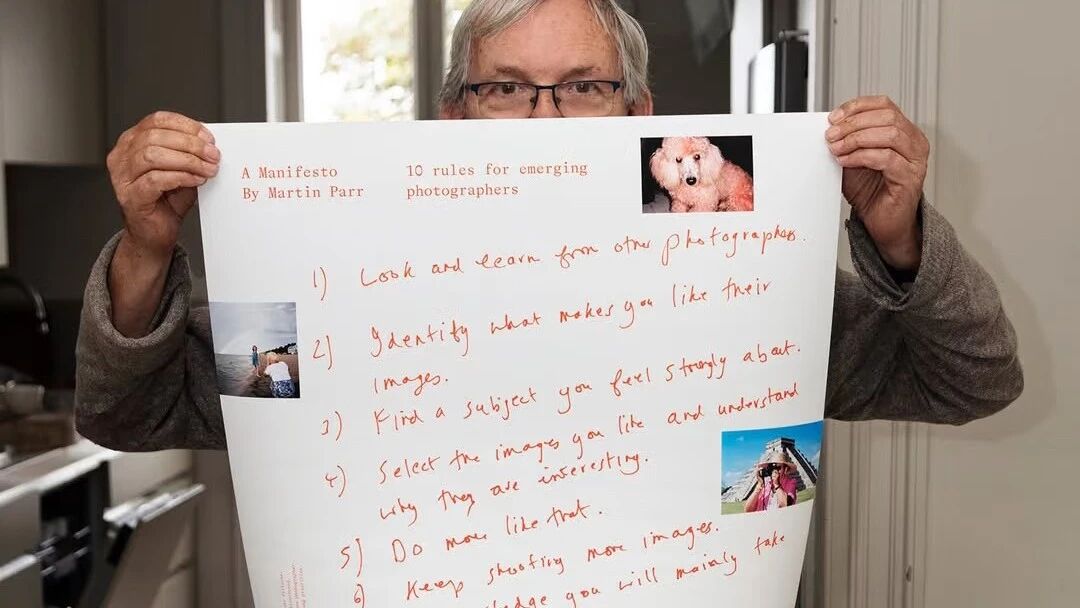 A Manifesto
By Martin Parr
10 rules for emerging
photographers
1) Look and learn from other photographers.
2) Identify what makes you like their
images.
3) Find a subject you feel strongly about.
4) Select the images you like and understand
why they are interesting.
5) Do more like that.
6) Keep shooting more images.
you will mainly take